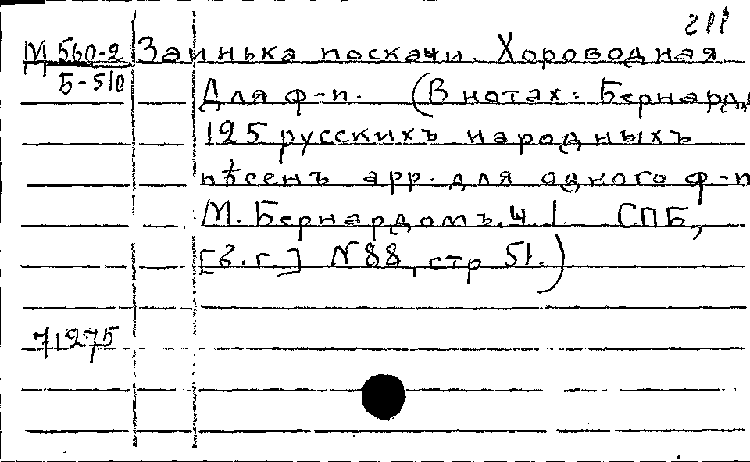 211
М 560-2 Заинька поскачи. Хороводная
Б-510 Для ф-п. (В нотах: Бернард,
125 русскихъ народныхъ
пѣсенъ арр. для одного ф-п
М. Бернардомъ. Ч. I СПБ,
[б.г.] N 88, стр 51.)
71275